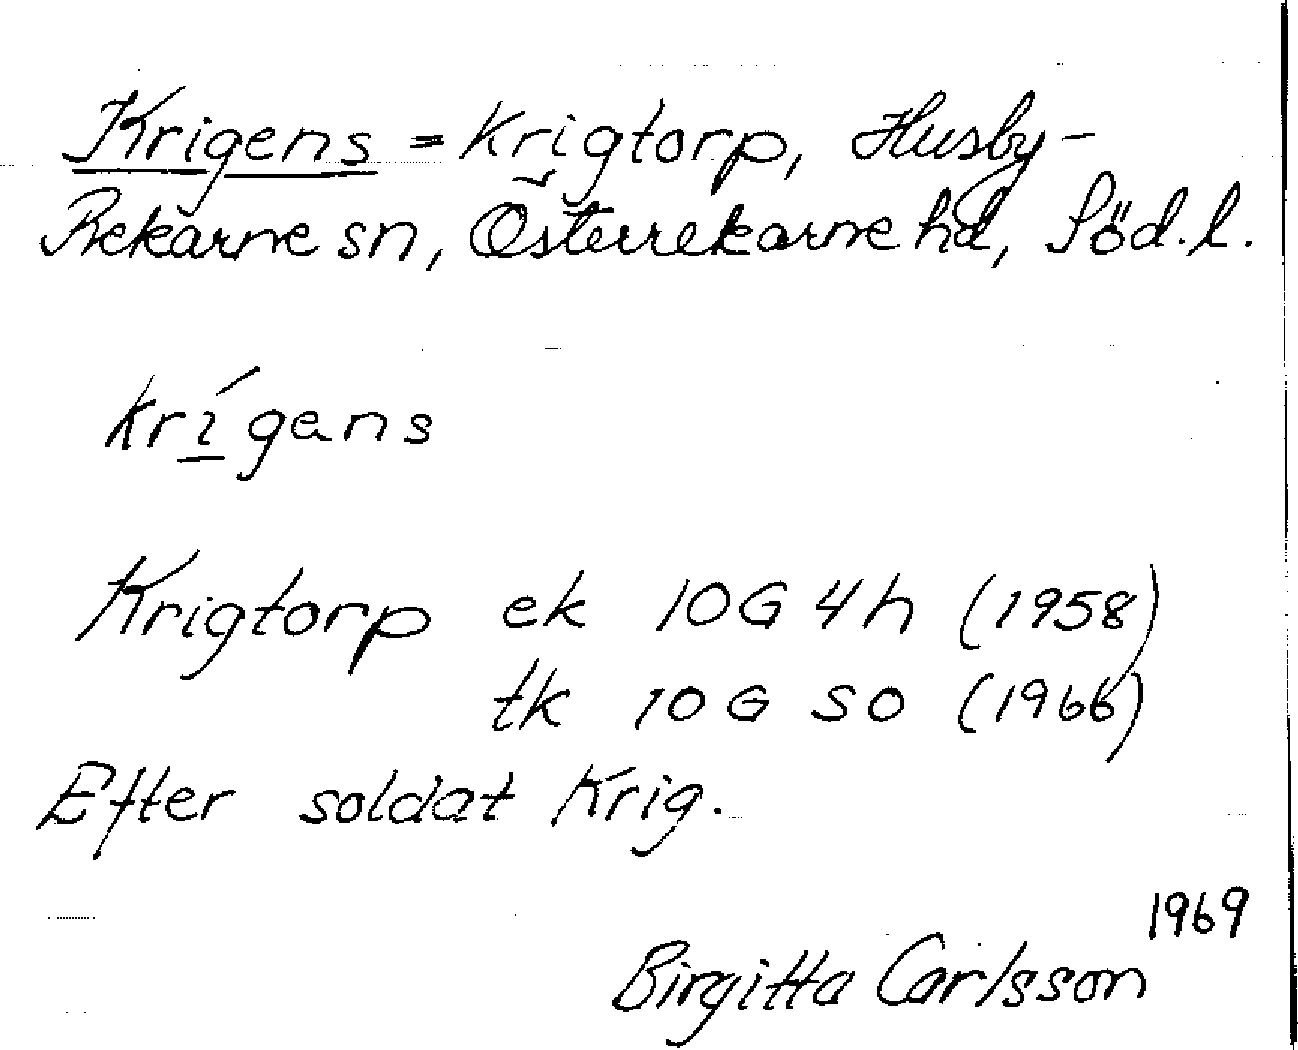 Krigens = Krigtorp, Husby-
Rekarne sn, Österrekarne hd, Söd.l.
krígans
Krigtorp ek 10G 4h (1958)
tk 10G SO (1966)
Efter soldat Krig.
1969
Birgitta Carlsson